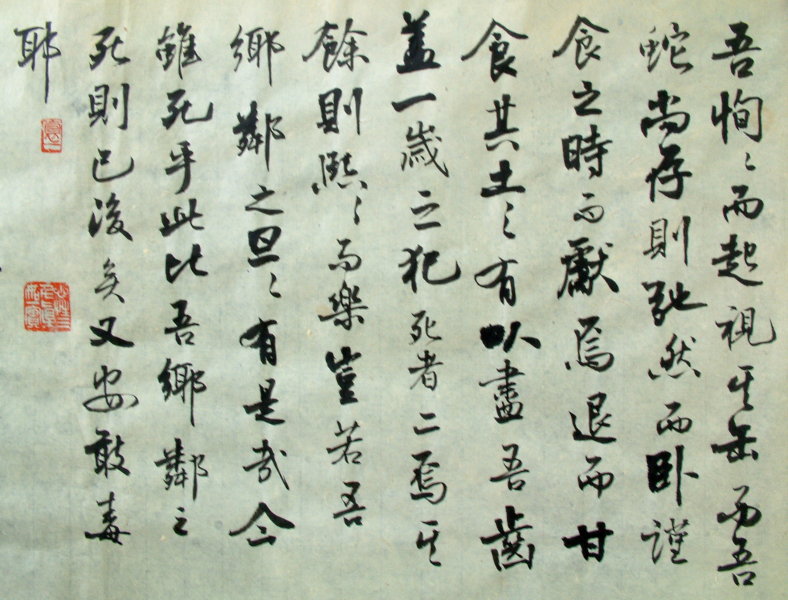 吾恂〻而起視其缶而吾
蛇尚存則弛然而卧謹
食之時而獻焉退而甘
食其土之有以盡吾齒
蓋一歲之犯死者二焉其
餘則熙〻而樂豈若吾
鄉鄰之旦〻有是哉今
雖死乎此比吾鄉鄰之
死則已後矣又安敢毒
耶